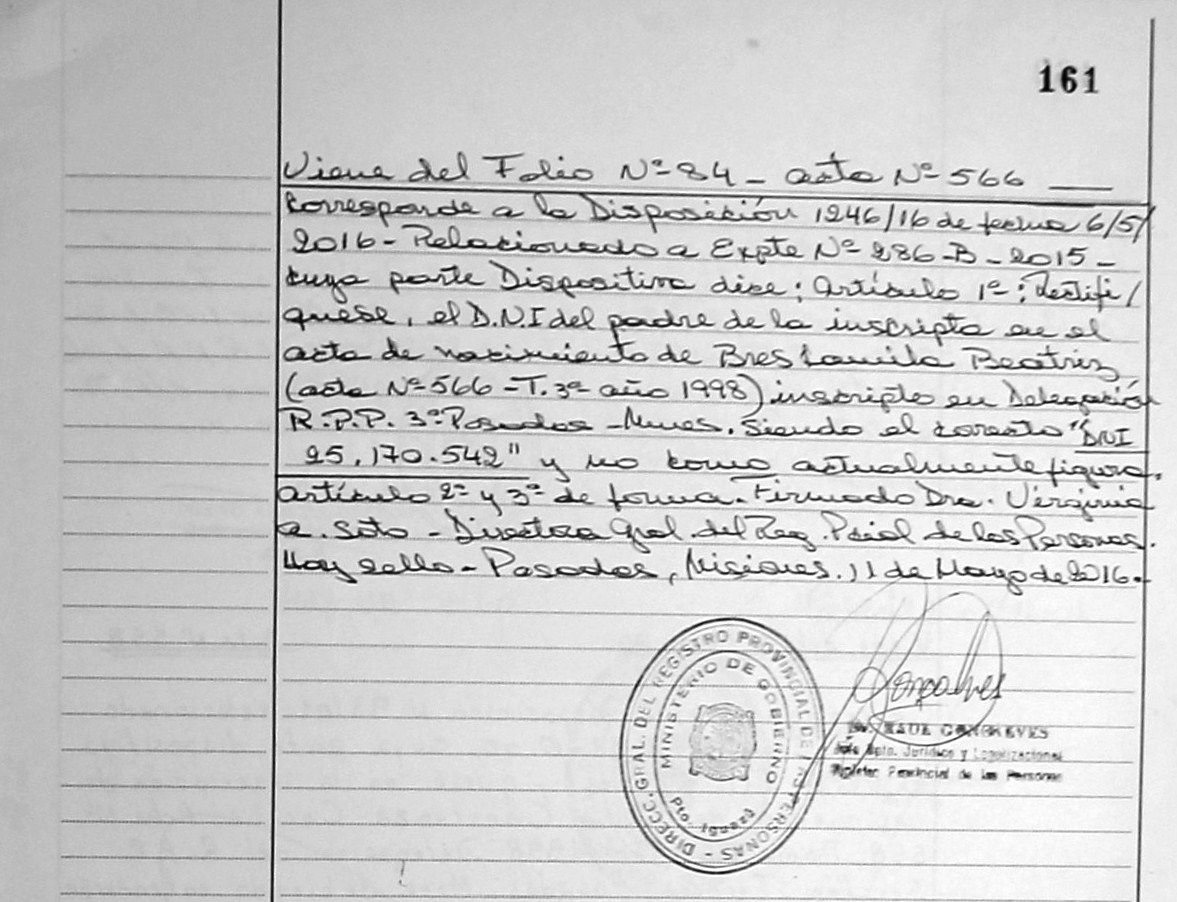 161
Viene del Folio Nº 84 - acta Nº 566
Corresponde a la Disposición 1246/16 de fecha 6/5/
2016 - Relacionado a Expte Nº 286-B-2015-
cuya parte Dispositiva dice: Artículo 1º: Rectifí/
quese, el D.N.I del padre de la inscripta en el
acta de nacimiento de Bres Camila Beatriz
(acta Nº 566 - T. 3º año 1998) inscripto en Delegación
R.P.P. 3º Posadas - Mnes. Siendo el correcto "DNI
25.170.542" y no como actualmente figura.
Artículo 2º y 3º de forma. Firmado Dra. Virginia
A. Soto - Directora Gral. del Reg. Pcial de las Personas.
Hay sello - Posadas, Misiones. 11 de Mayo de 2016.-
DIRECC. GRAL. DEL REGISTRO PROVINCIAL DE LAS PERSONAS -
MINISTERIO DE GOBIERNO
Pto. Iguazú
RAUL
Jefe Dpto. Jurídico y
Provincial de las Personas